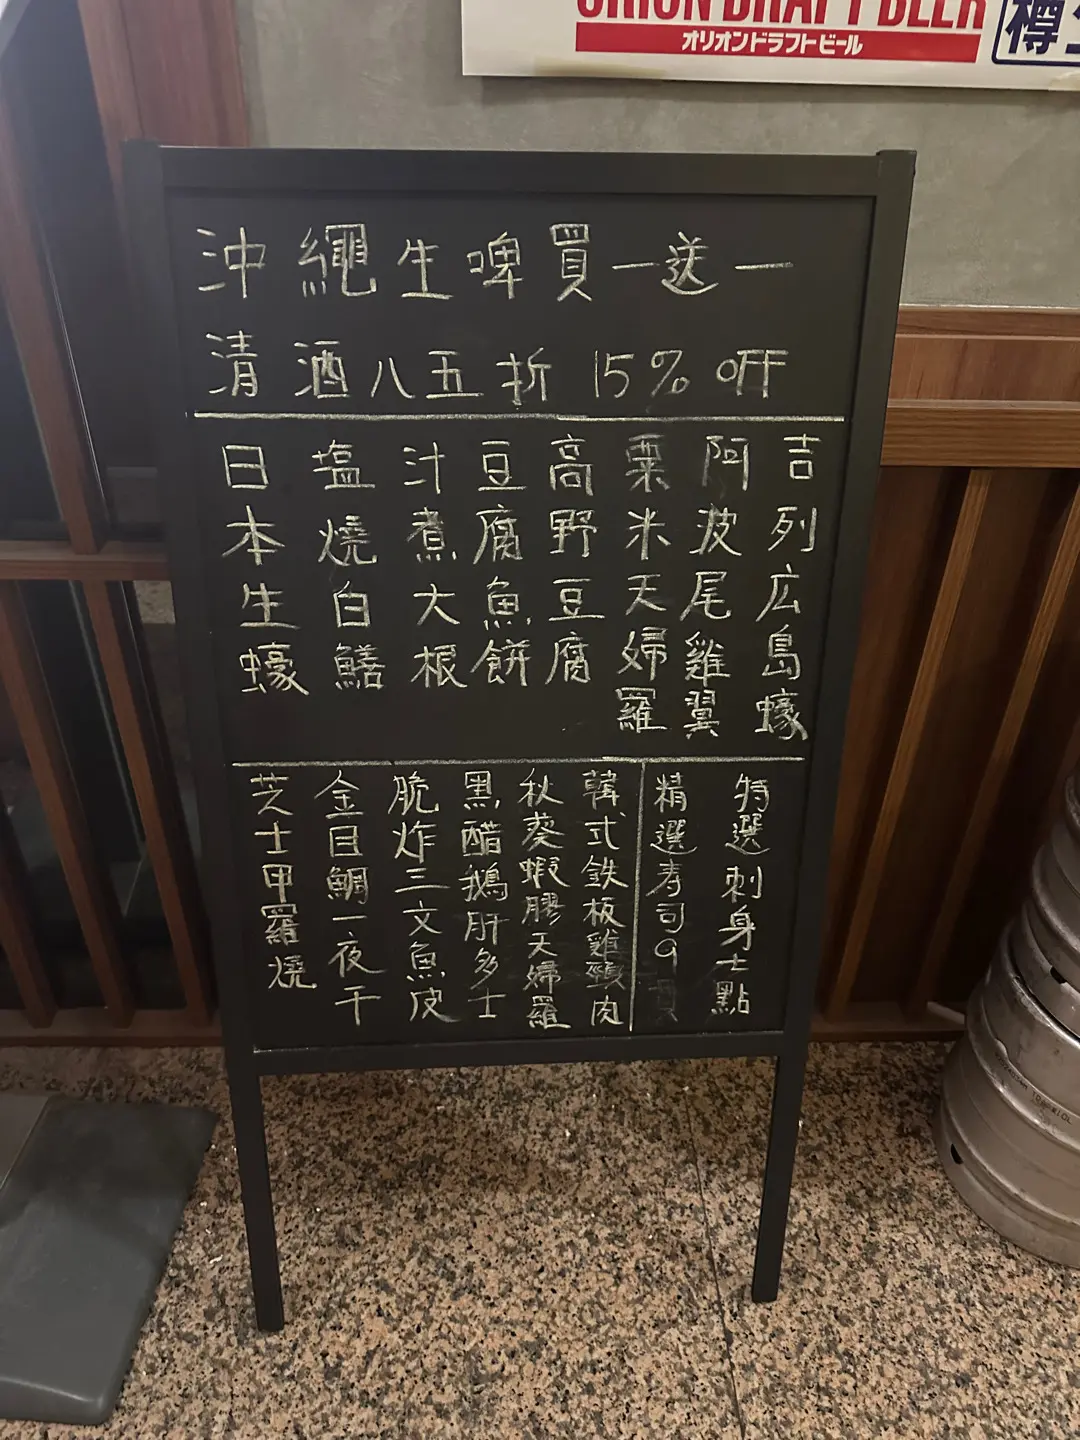 ORION DRAFT BEER
オリオンドラフトビール
樽生
沖繩生啤買一送一
清酒八五折 15% off
吉列広島蠔
阿波尾雞翼
粟米天婦羅
高野豆腐
豆腐魚餅
汁煮大根
塩燒白鱔
日本生蠔
特選刺身七點
精選壽司9貫
韓式鉄板雞頸肉
秋葵蝦膠天婦羅
黑醋鵝肝多士
脆炸三文魚皮
金目鯛一夜干
芝士甲羅燒